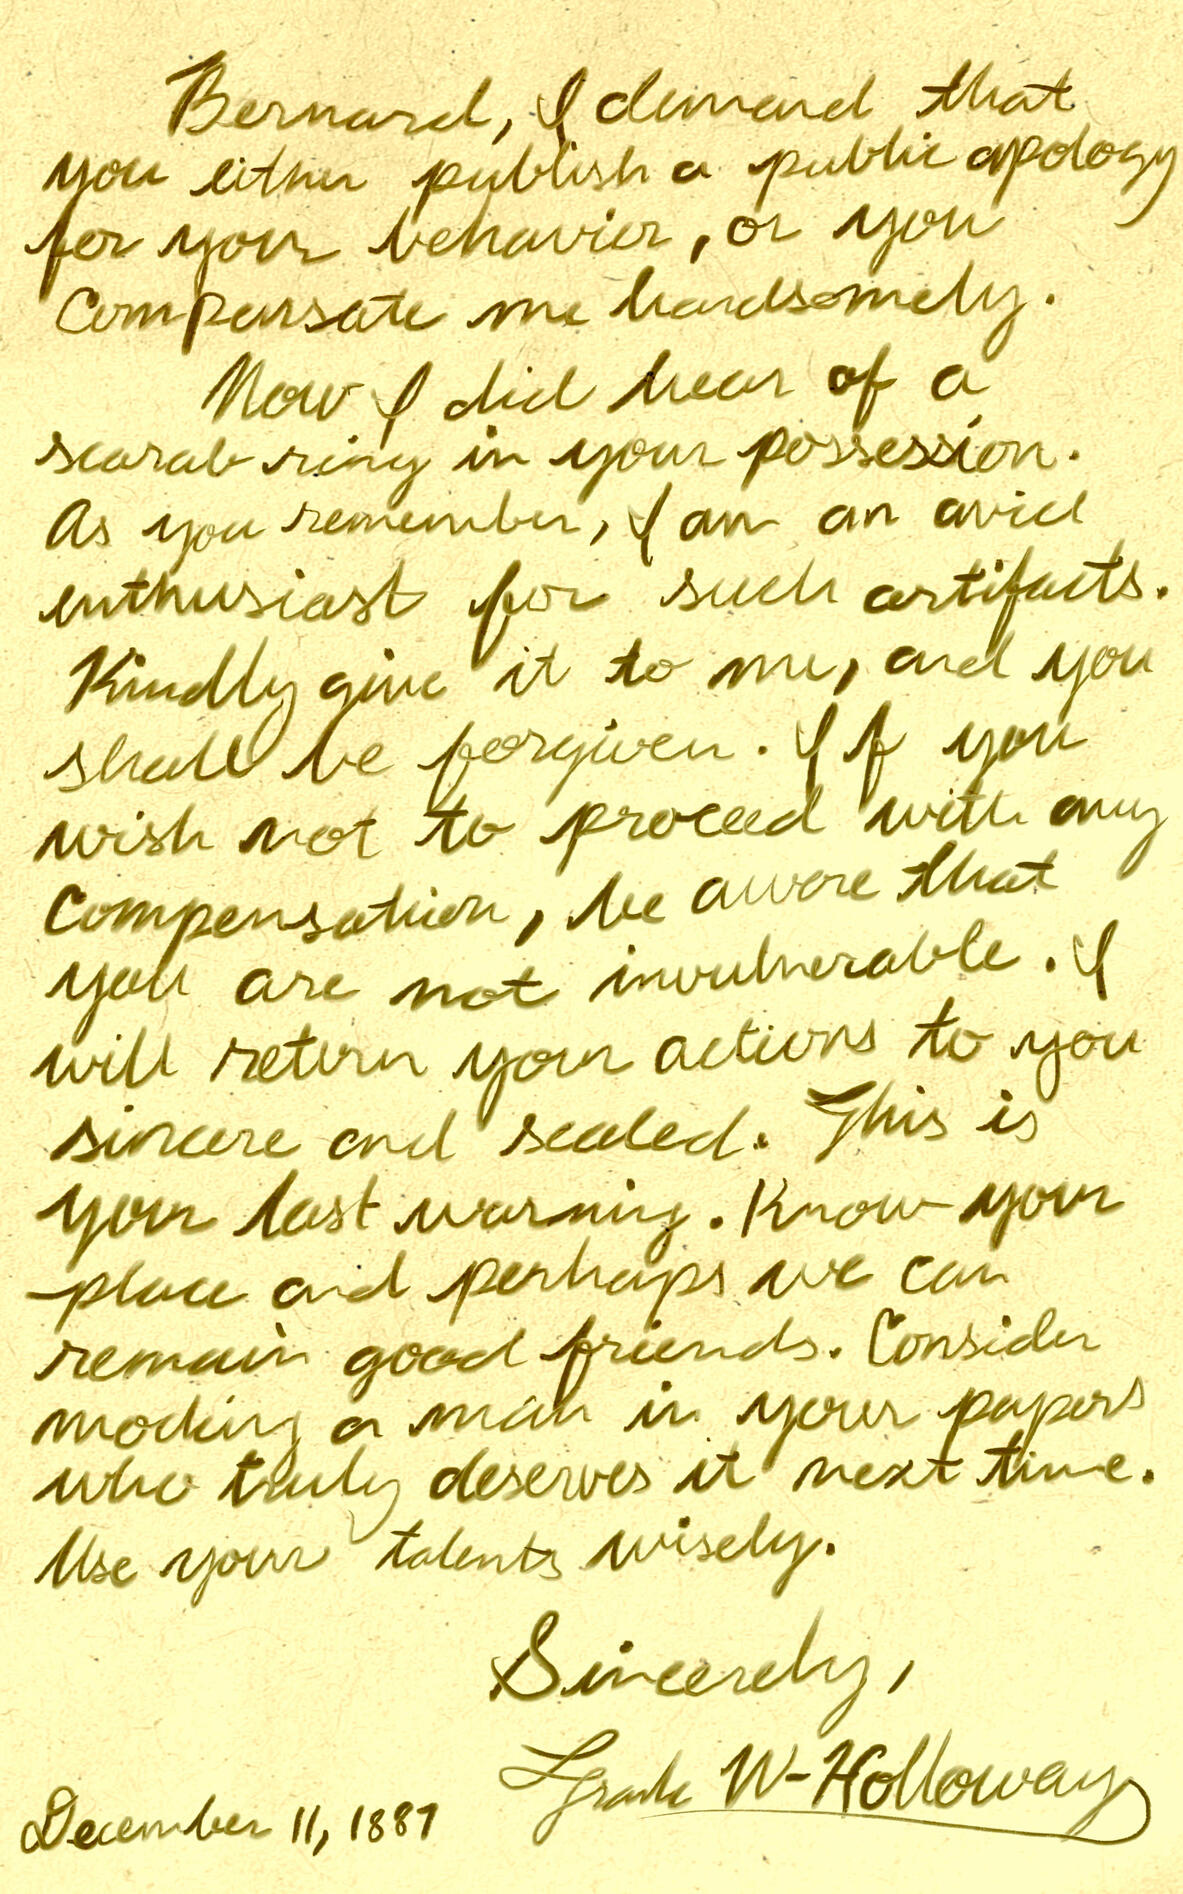 Bernard, I demand that
you either publish a public apology
for your behavior, or you
Compensate me handsomely.
Now I did hear of a
scarab ring in your possession.
As you remember, I am an avid
enthusiast for such artifacts.
Kindly give it to me, and you
shall be forgiven. If you
wish not to proceed with any
Compensation, be aware that
you are not invulnerable. I
will return your actions to you
sincere and sealed. This is
your last warning. Know your
place and perhaps we can
remain good friends. Consider
mocking a man in your papers
who truly deserves it next time.
Use your talents wisely.
Sincerely,
Frank W-Holloway
December 11, 1887